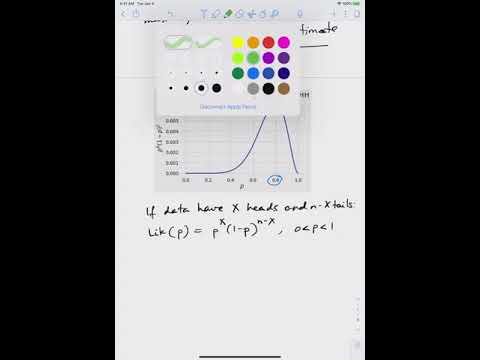 timate
Disconnect Apple Pencil
HH
0.005
0.004
0.003
0.002
0.001
0.000
0.0 0.2 0.4 0.6 0.8 1.0
p
If data have X heads and n-X tails:
Lik(p) = p^X (1-p)^(n-X), 0<p<1